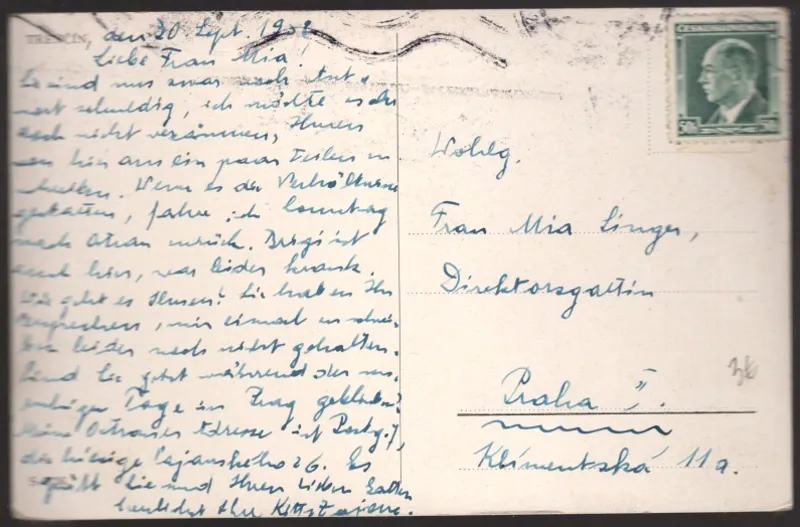 TRENČÍN, den 20 Sept. 1938
Liebe Frau Mia!
Sie sind mir zwar noch Ant-
wort schuldig, ich möchte es aber
doch nicht versäumen, Ihnen
von hier aus ein paar Zeilen zu
. Wenn es die Verhältnisse
gestatten, fahre ich Sonntag
nach zurück. Brigi ist
auch hier, war leider krank.
Wie geht es Ihnen? Sie haben Ihr
Versprechen, mir einmal zu schrei-
ben leider noch nicht gehalten.
Sind Sie jetzt während der un-
ruhigen Tage in Prag geblieben?
Meine Adresse ist 7,
die hiesige 26. Es
grüßt Sie und Ihren lieben Gatten
herzlichst Ihre
ČESKOSLOVENSKO
50h
Wohlg.
Frau Mia Singer,
Direktorsgattin
Praha II.
Klimentská 11a.